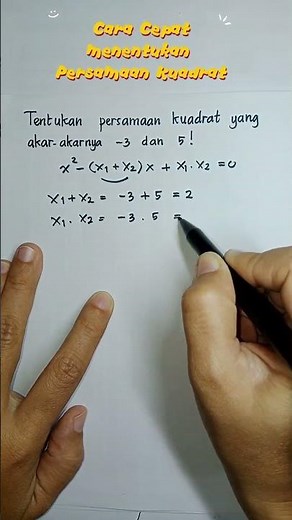 Cara Cepat
menentukan
Persamaan Kuadrat
Tentukan persamaan kuadrat yang
akar-akarnya -3 dan 5!
x² - (x₁ + x₂) x + x₁ . x₂ = 0
x₁ + x₂ = -3 + 5 = 2
x₁ . x₂ = -3 . 5 =